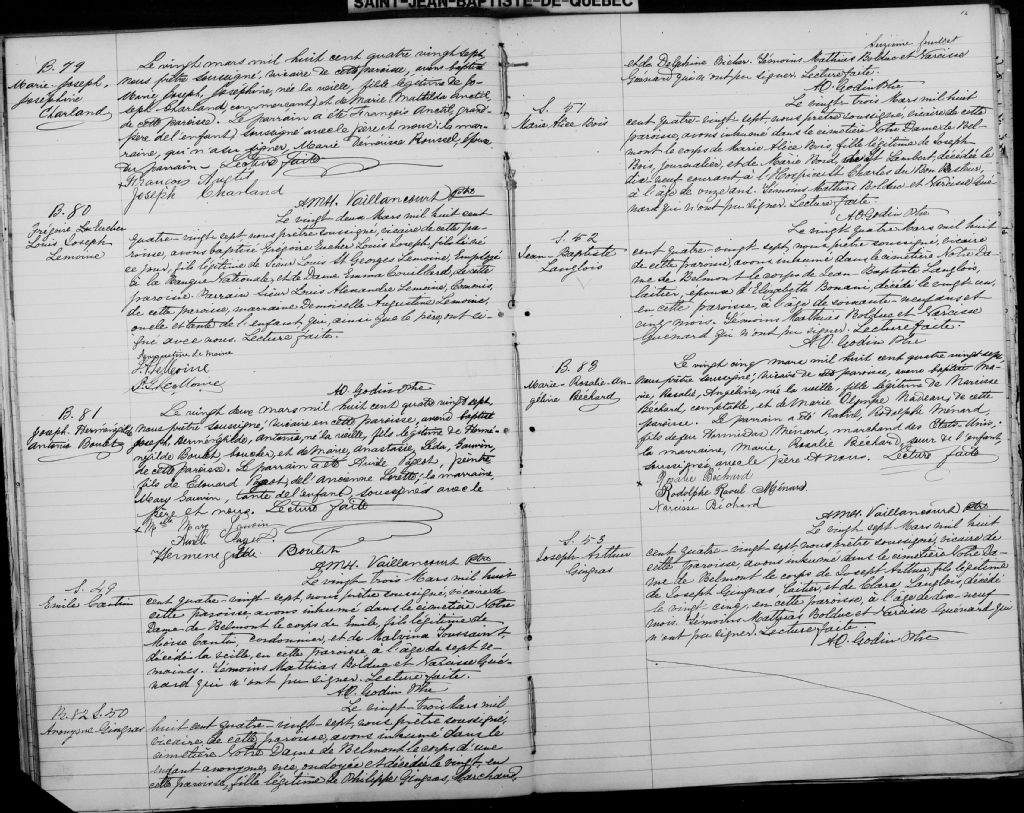 SAINT-JEAN-BAPTISTE-DE-QUÉBEC
B. 79
Marie-Joseph,
Joséphine
Charland
Le vingt mars mil huit cent quatre vingt sept
nous prêtre soussigné, vicaire de cette paroisse, avons baptisé
Marie, Joseph, Joséphine, née la veille, fille légitime de Jo-
seph Charland, commerçant, et de Marie Mathilda Anctil
de cette paroisse. Le parrain a été François Anctil, grand-
père de l'enfant, soussigné avec le père et nous; la mar-
raine, qui n'a su signer, Marie Roussel, épouse
du parrain. Lecture faite
François
Joseph Charland
A M H. Vaillancourt Ptre
B. 80
Grégoire Eucher
Louis Joseph
Lemoine
Le vingt deux mars mil huit cent
quatre-vingt sept nous prêtre soussigné, vicaire de cette pa-
roisse, avons baptisé Grégoire Eucher Louis Joseph, fils né
ce jour, fils légitime de Sieur Louis St Georges Lemoine, Employé
à la Banque Nationale, et de Dame Emma Couillard, de cette
paroisse. Parrain Sieur Louis Alexandre Lemoine, Commis,
de cette paroisse, marraine Demoiselle Augustine Lemoine,
oncle et tante de l'enfant, qui, ainsi que le père, ont si-
gné avec nous. Lecture faite.
A O. Godin Ptre
B. 81
Joseph. Herménégilde
Antonio Boulet
Le vingt deux mars mil huit cent quatre vingt sept,
nous prêtre soussigné, vicaire en cette paroisse, avons baptisé
Joseph Herménégilde, Antonio, né la veille, fils légitime de Hermé-
négilde Boulet, boucher, et de Marie, Anastasie, Gauvin,
de cette paroisse. Le parrain a été peintre
fils de Edouard de l'Ancienne Lorette; la marraine,
Mary Gauvin, tante de l'enfant, soussignés avec le
père et nous. Lecture faite
Mlle Mary Gauvin
Hermenegilde Boulet
A M H. Vaillancourt Ptre
S. 49
Emile Cantin
Le vingt trois Mars mil huit
cent quatre-vingt-sept, nous prêtre soussigné, vicaire de
cette paroisse, avons inhumé dans le cimetière Notre
Dame de Belmont le corps de Emile, fils légitime de
Moïse Cantin, cordonnier, et de Malvina Toussaint,
décédé la veille, en cette paroisse à l'âge de sept se-
maines. Témoins Matthias Bolduc et Narcisse Gué-
nard qui n'ont pu signer. Lecture faite.
A O. Godin Ptre
B. 82 S. 50
Anonyme Gingras
Le vingt-trois Mars mil
huit cent quatre-vingt-sept, nous prêtre soussigné,
vicaire de cette paroisse, avons inhumé dans le
cimetière Notre Dame de Belmont le corps d'une
enfant anonyme, née, ondoyée et décédée le vingt, en
cette paroisse, fille légitime de Philippe Gingras, Marchand,
et de Delphine Bicher. Témoins Mathias Bolduc et Narcisse
Guénard qui n'ont pu signer. Lecture faite.
A O. Godin Ptre
S. 51
Marie Alice Bois
Le vingt-trois Mars mil huit
cent quatre-vingt-sept nous prêtre soussigné, vicaire de cette
paroisse, avons inhumé dans le cimetière Notre Dame de Bel-
mont le corps de Marie Alice Bois, fille légitime de Joseph
Bois, journalier, et de Marie Lambert, décédée le
dix-neuf courant à l'Hospice St Charles du Bon Pasteur,
à l'âge de onze ans. Témoins Mathias Bolduc et Narcisse Gué-
nard qui n'ont pu signer. Lecture faite.
A O. Godin Ptre
S. 52
Jean-Baptiste
Langlois
Le vingt quatre Mars mil huit
cent quatre-vingt sept, nous prêtre soussigné, vicaire
de cette paroisse, avons inhumé dans le cimetière Notre Da-
me de Belmont le corps de Jean Baptiste Langlois,
laitier, époux d'Elizabeth Bonani, décédé le vingt un,
en cette paroisse, à l'âge de soixante-neuf ans et
cinq mois. Témoins Mathias Bolduc et Narcisse
Guénard qui n'ont pu signer. Lecture faite.
A O. Godin Ptre
B. 83
Marie-Rosalie-An-
géline Bechard
Le vingt cinq mars mil huit cent quatre vingt sept
nous prêtre soussigné, vicaire de paroisse, avons baptisé Ma-
rie, Rosalie, Angéline, née la veille, fille légitime de Narcisse
Béchard, comptable, et de Marie Olympe Nadeau, de cette
paroisse. Le parrain a été Raoul, Rodolphe Ménard,
fils de feu Hormidas Ménard, marchand des Etats-Unis;
la marraine, Marie, Rosalie Béchard, sœur de l'enfant,
soussignés avec le père et nous. Lecture faite
Rosalie Béchard
Rodolphe Raoul Ménard
Narcisse Béchard
A M H. Vaillancourt Ptre
S. 53
Joseph Arthur
Gingras
Le vingt sept Mars mil huit
cent quatre-vingt-sept nous prêtre soussigné, vicaire de
cette paroisse, avons inhumé dans le cimetière Notre Da-
me de Belmont le corps de Joseph Arthur, fils légitime
de Joseph Gingras, laitier, et de Clara Langlois, décédé
le vingt cinq, en cette paroisse, à l'âge de dix-neuf
mois. Témoins Mathias Bolduc et Narcisse Guénard qui
n'ont pu signer. Lecture faite.
A O. Godin Ptre